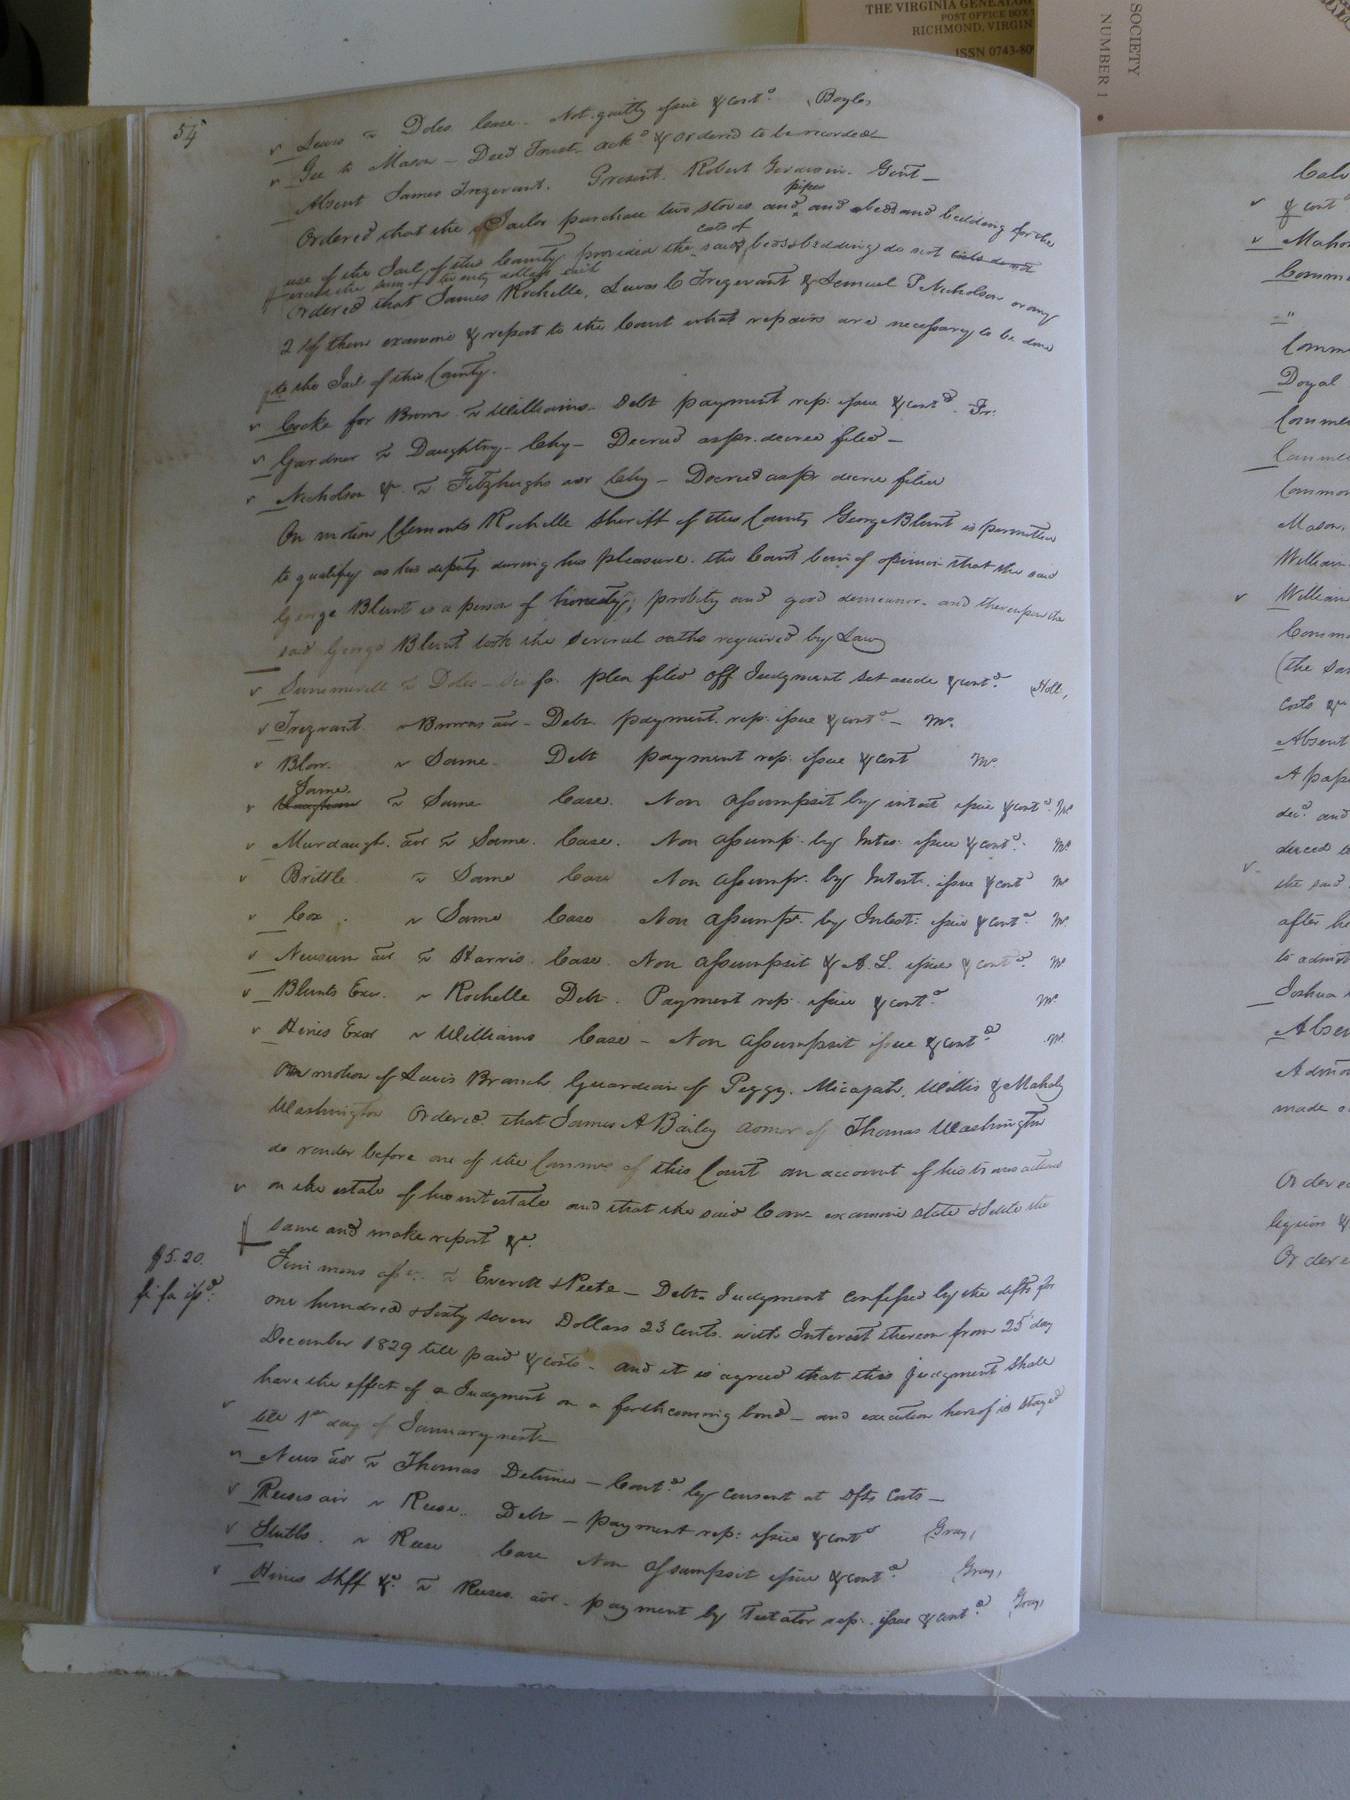 THE VIRGINIA GENEALOG
POST OFFICE BOX
RICHMOND, VIRGIN
ISSN 0743-80
SOCIETY
NUMBER 1
54
Lewis vs Doles Case. Not guilty issue & contd. (Boyle,
Gee to Mason - Deed Trust ackd & ordered to be recorded
Absent James Trezevant. Present. Robert Gent -
Ordered that the Jailor purchase two stoves and pipes and beds and bedding for the
use of the Jail of this County provided the costs of said beds & bedding do not
exceed the sum of twenty dollars each
Ordered that James Rochelle, Lewis C Trezevant & Lemuel P Nicholson or any
2 of them examine & report to the Court what repairs are necessary to be done
to the Jail of this County.
Cocke for Brown vs Williams - Debt payment rep: issue & contd. Tr:
Gardner vs Daughtry - Chy - Decreed as pr. decree filed -
Nicholson &c. vs Fitzhughs aor Chy - Decreed as pr decree filed
On motion Clements Rochelle Sheriff of this County George Blunt is permitted
to qualify as his deputy during his pleasure. the Court being of opinion that the said
George Blunt is a person of honesty, probity and good demeanor - and thereupon the
said George Blunt took the several oaths required by Law
Summerell vs Doles - Sci fa. plea filed off Judgment set aside & contd. (Holt,
Trezvant vs Browns aor - Debt. payment. rep: issue & contd - Mc.
Blow. vs Same. Debt payment rep: issue & cont Mc.
Same. vs Same Case. Non assumpsit by intest issue & contd. Mc
Murdaugh. aor vs Same. Case. Non assump: by Intes: issue & contd. Mc
Brittle vs Same Case Non assump. by Intest. issue & contd Mc
Cox. vs Same Case Non assump. by Intest: issue & contd. Mc.
Newsum aor vs Harris. Case. Non assumpsit & A. L. issue & contd. Mc
Blunts Exor. vs Rochelle Debt. Payment rep: issue & contd Mc.
Hines Exor vs Williams Case - Non assumpsit issue & contd Mc.
On motion of Lewis Branch Guardian of Peggy, Micajah, Willis & Mahaly
Washington Ordered that James A Bailey admor of Thomas Washington
do render before one of the Commrs of this Court an account of his transactions
on the estate of his intestate and that the said Comr examine state & settle the
same and make report &c.
$5.20.
fi fa issd:
Simmons assee. vs Everett & Peete - Debt. Judgment confessed by the defts for
one hundred & sixty seven Dollars 23 Cents. with Interest thereon from 25 day
December 1829 till paid & costs - and it is agreed that this judgment shall
have the effect of a Judgment on a forthcoming bond - and execution hereof is stayed
till 1st day of January next -
News aor vs Thomas Detinue - Contd. by consent at Defts Costs -
Reeses aor vs Reese. Debt - payment rep: issue & contd (Gray,
Stubbs. vs Reese Case Non assumpsit issue & contd. (Gray,
Hines Shff &c. vs Reeses aor - payment by Testator rep: issue & contd. (Gray,
& cont
Mahon
Comm
Doyal
Mason.
William
William
Comm
(the sa
costs &c
Absent
A pap
decd. and
the said
after he
to admit
Joshua
Absen
Admo
made o
Ordere
Ordere